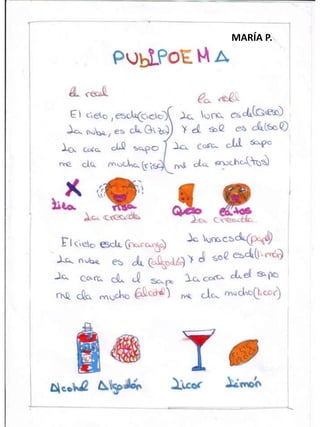 MARÍA P.
PUbLIPOEMA
la real La real
El cielo, es de(cielo) La luna es de(Queso)
La nube, es de (tiza) Y el sol es de(sol)
La cara del sapo La cara del sapo
me da mucha(risa) me da mucha(tos)
tiza risa Queso la tos
La creada La creada
El cielo es de (naranja) La luna es de(papel)
La nube es de (algodón) Y el sol es de(limón)
La cara de el sapo La cara del sapo
me da mucho (alcohol) me da mucho(licor)
Alcohol Algodón Licor Limón